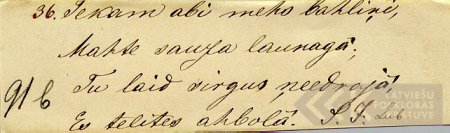 36. Tekam abi meho bahliņi,
Mahte sauza launagâ;
91b
Tu laid sirgus needrajâ,
Es telites ahbolâ. P. J. Lub.
LATVIEŠU
FOLKLORAS
KRĀTUVE